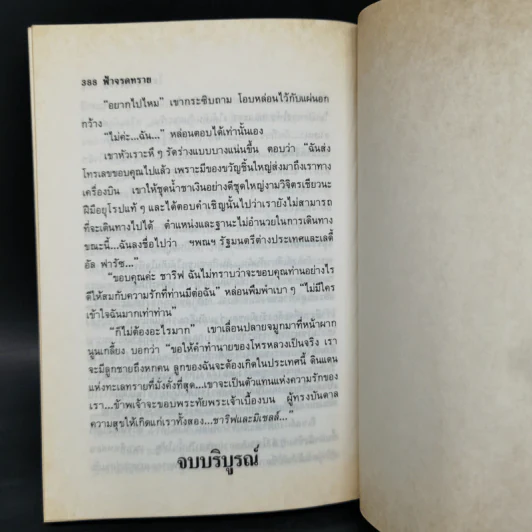 388 ฟ้าจรดทราย
"อยากไปไหม" เขากระซิบถาม โอบหล่อนไว้กับแผ่นอก
กว้าง
"ไม่ค่ะ...ฉัน..." หล่อนตอบได้เท่านั้นเอง
เขาหัวเราะหึ ๆ รัดร่างแบบบางแน่นขึ้น ตอบว่า "ฉันส่ง
โทรเลขขอบคุณไปแล้ว เพราะมีของขวัญชิ้นใหญ่ส่งมาถึงเราทาง
เครื่องบิน เขาให้ชุดน้ำชาเงินอย่างดีชุดใหญ่งามวิจิตรเชียวนะ
ฝีมือยุโรปแท้ ๆ และได้ตอบคำเชิญนั้นไปว่าเรายังไม่สามารถ
ที่จะเดินทางไปได้ ตำแหน่งและฐานะไม่อำนวยในการเดินทาง
ขณะนี้...ฉันลงชื่อไปว่า ฯพณฯ รัฐมนตรีต่างประเทศและเลดี้
อัล ฟารัซ..."
"ขอบคุณค่ะ ชารีฟ ฉันไม่ทราบว่าจะขอบคุณท่านอย่างไร
ดีให้สมกับความรักที่ท่านมีต่อฉัน" หล่อนพึมพำเบา ๆ "ไม่มีใคร
เข้าใจฉันมากเท่าท่าน"
"ก็ไม่ต้องอะไรมาก" เขาเลื่อนปลายจมูกมาที่หน้าผาก
นูนเกลี้ยง บอกว่า "ขอให้คำทำนายของโหรหลวงเป็นจริง เรา
จะมีลูกชายถึงหกคน ลูกของฉันจะต้องเกิดในประเทศนี้ ดินแดน
แห่งทะเลทรายที่มั่งคั่งที่สุด...เขาจะเป็นตัวแทนแห่งความรักของ
เรา...ข้าพเจ้าจะขอบพระทัยพระเจ้าเบื้องบน ผู้ทรงบันดาล
ความสุขให้เกิดแก่เราทั้งสอง...ชารีฟและมิเชลล์..."
จบบริบูรณ์